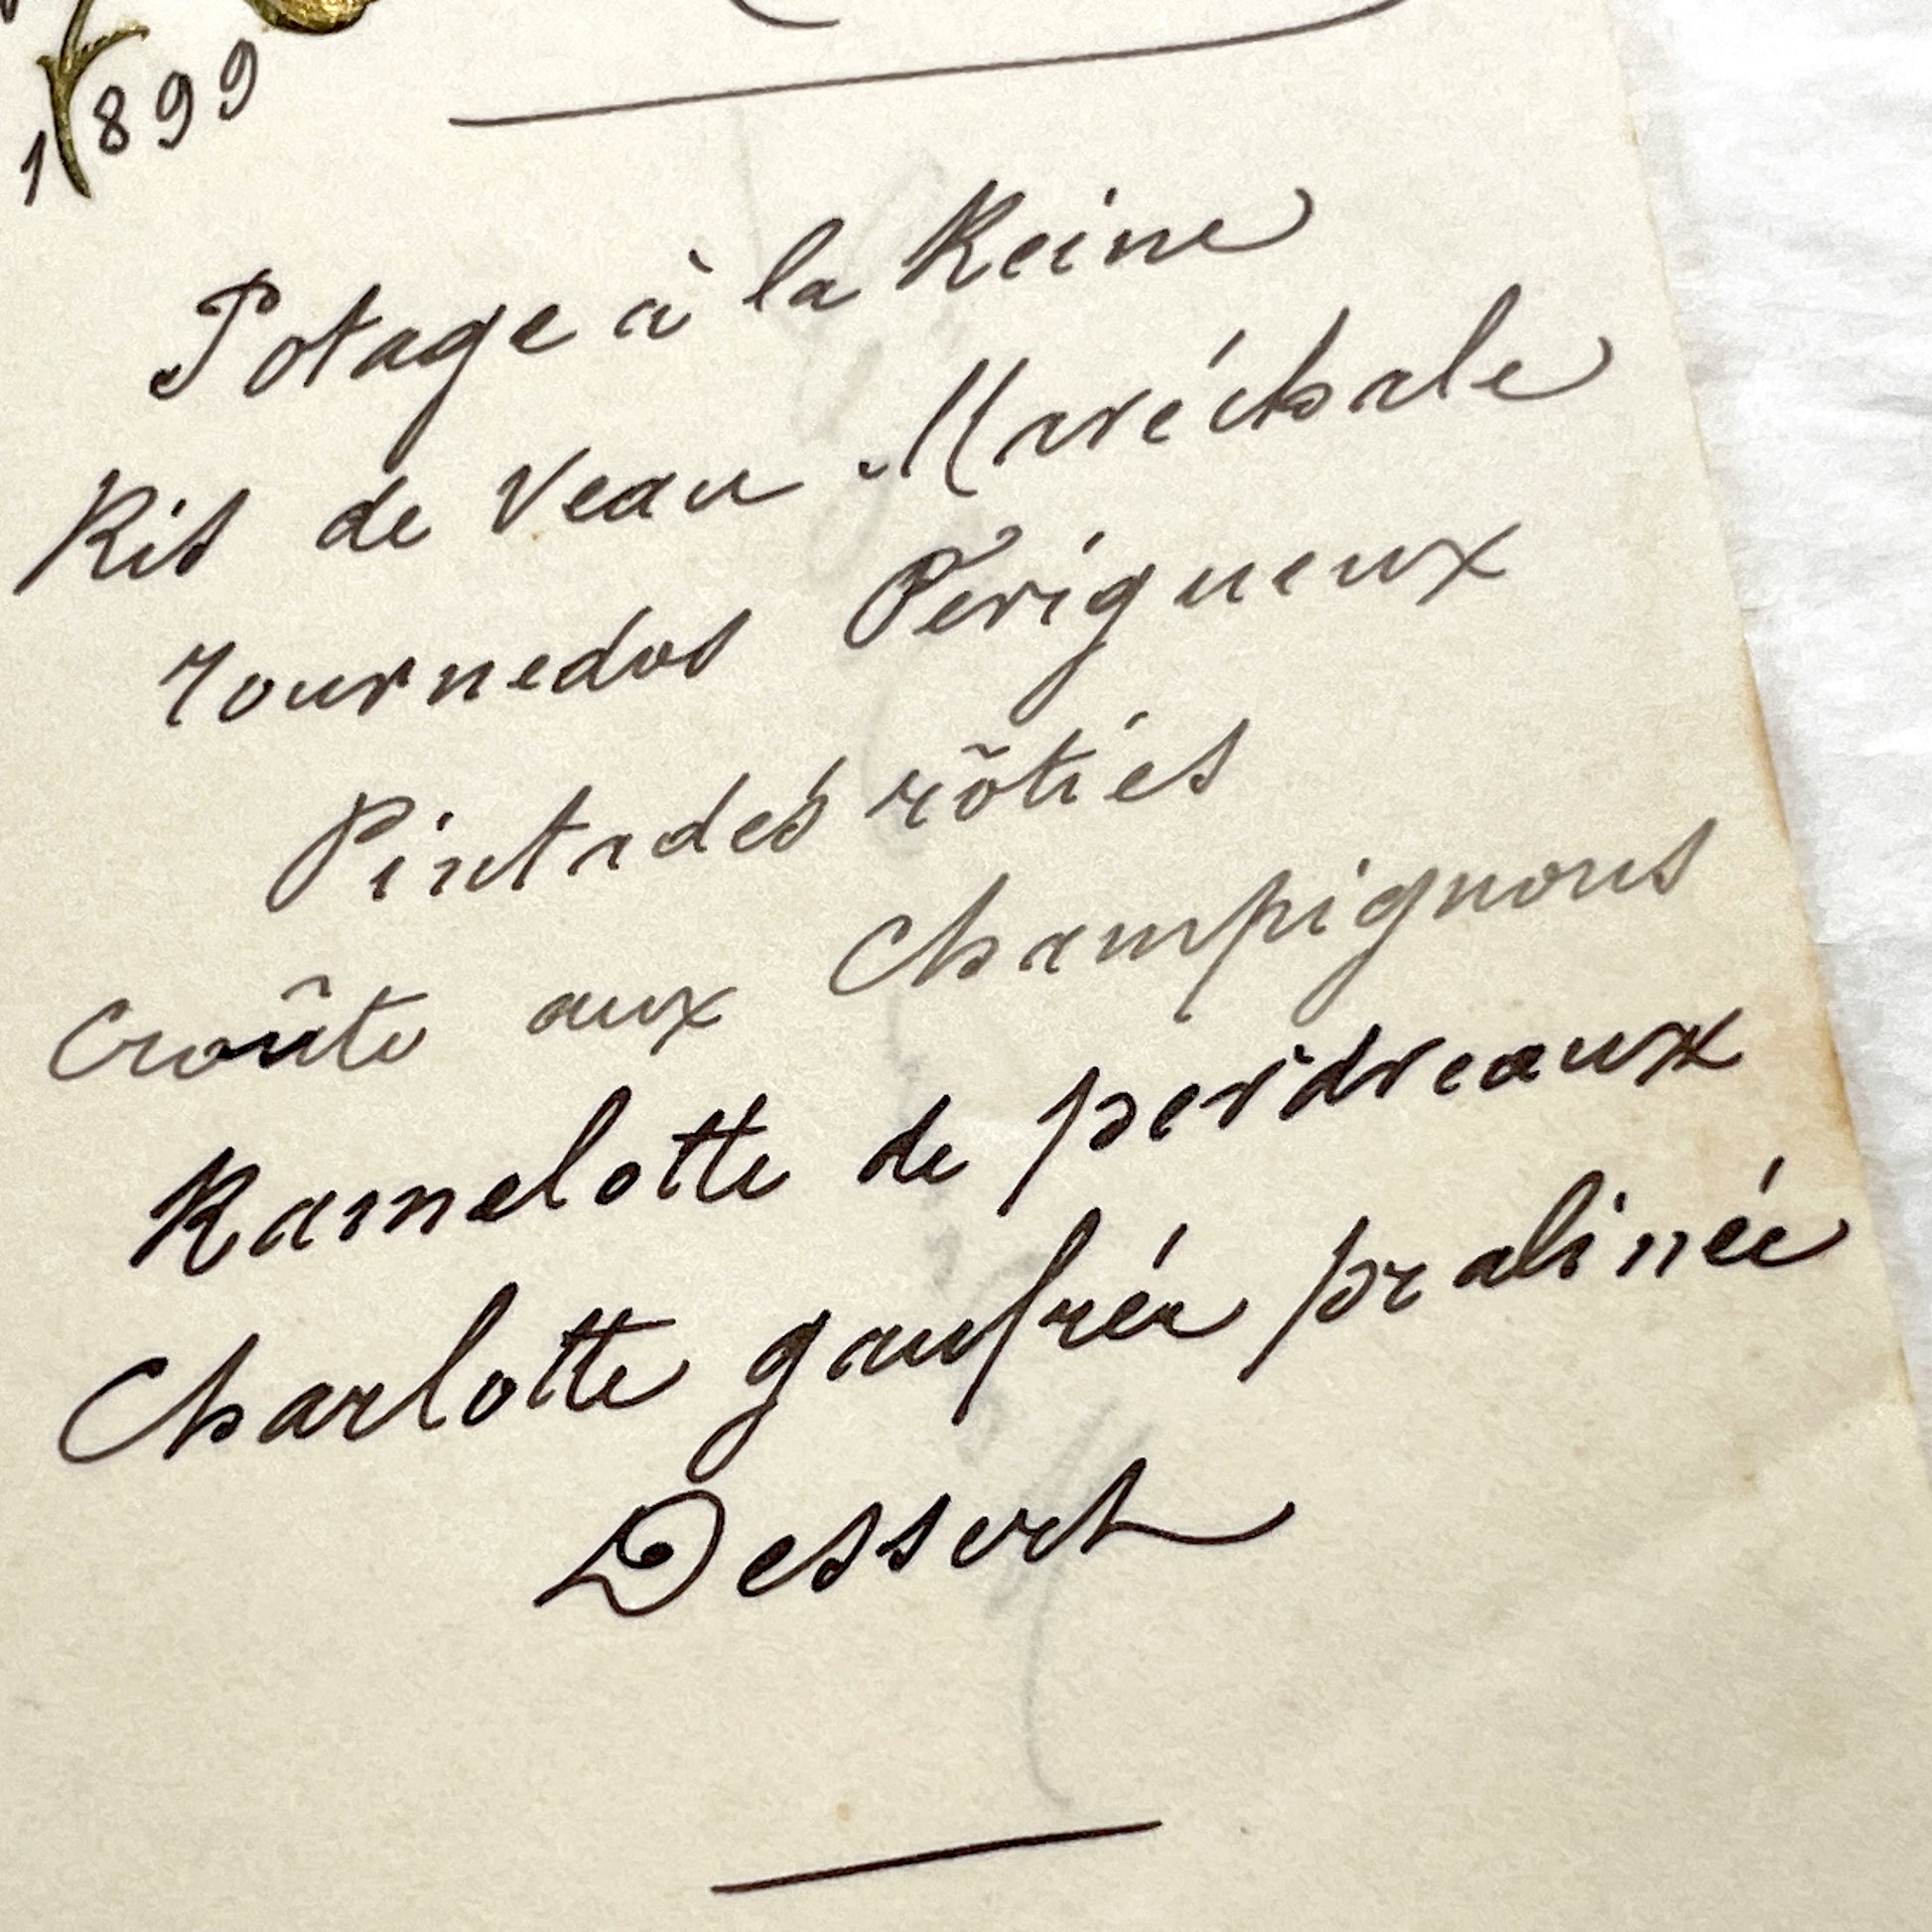 1899
Potage à la Reine
Ris de Veau Maréchale
Tournedos Périgueux
Pintades rôties
Croûte aux Champignons
Ramelotte de perdreaux
Charlotte gaufrée pralinée
Dessert